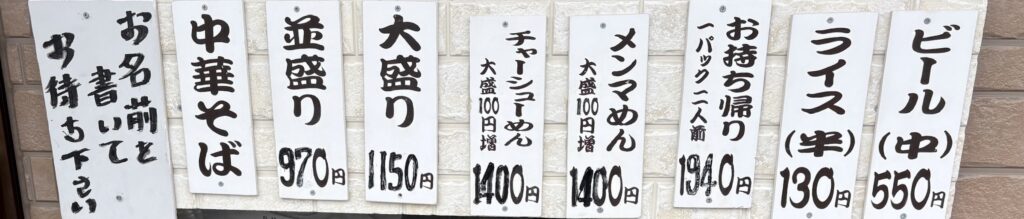 お名前と
書いて
お待ち下さい
中華そば
並盛り
970円
大盛り
1150円
チャーシューめん
大盛100円増
1400円
メンマめん
大盛100円増
1400円
お持ち帰り
一パック二人前
1940円
ライス(半)
130円
ビール(中)
550円